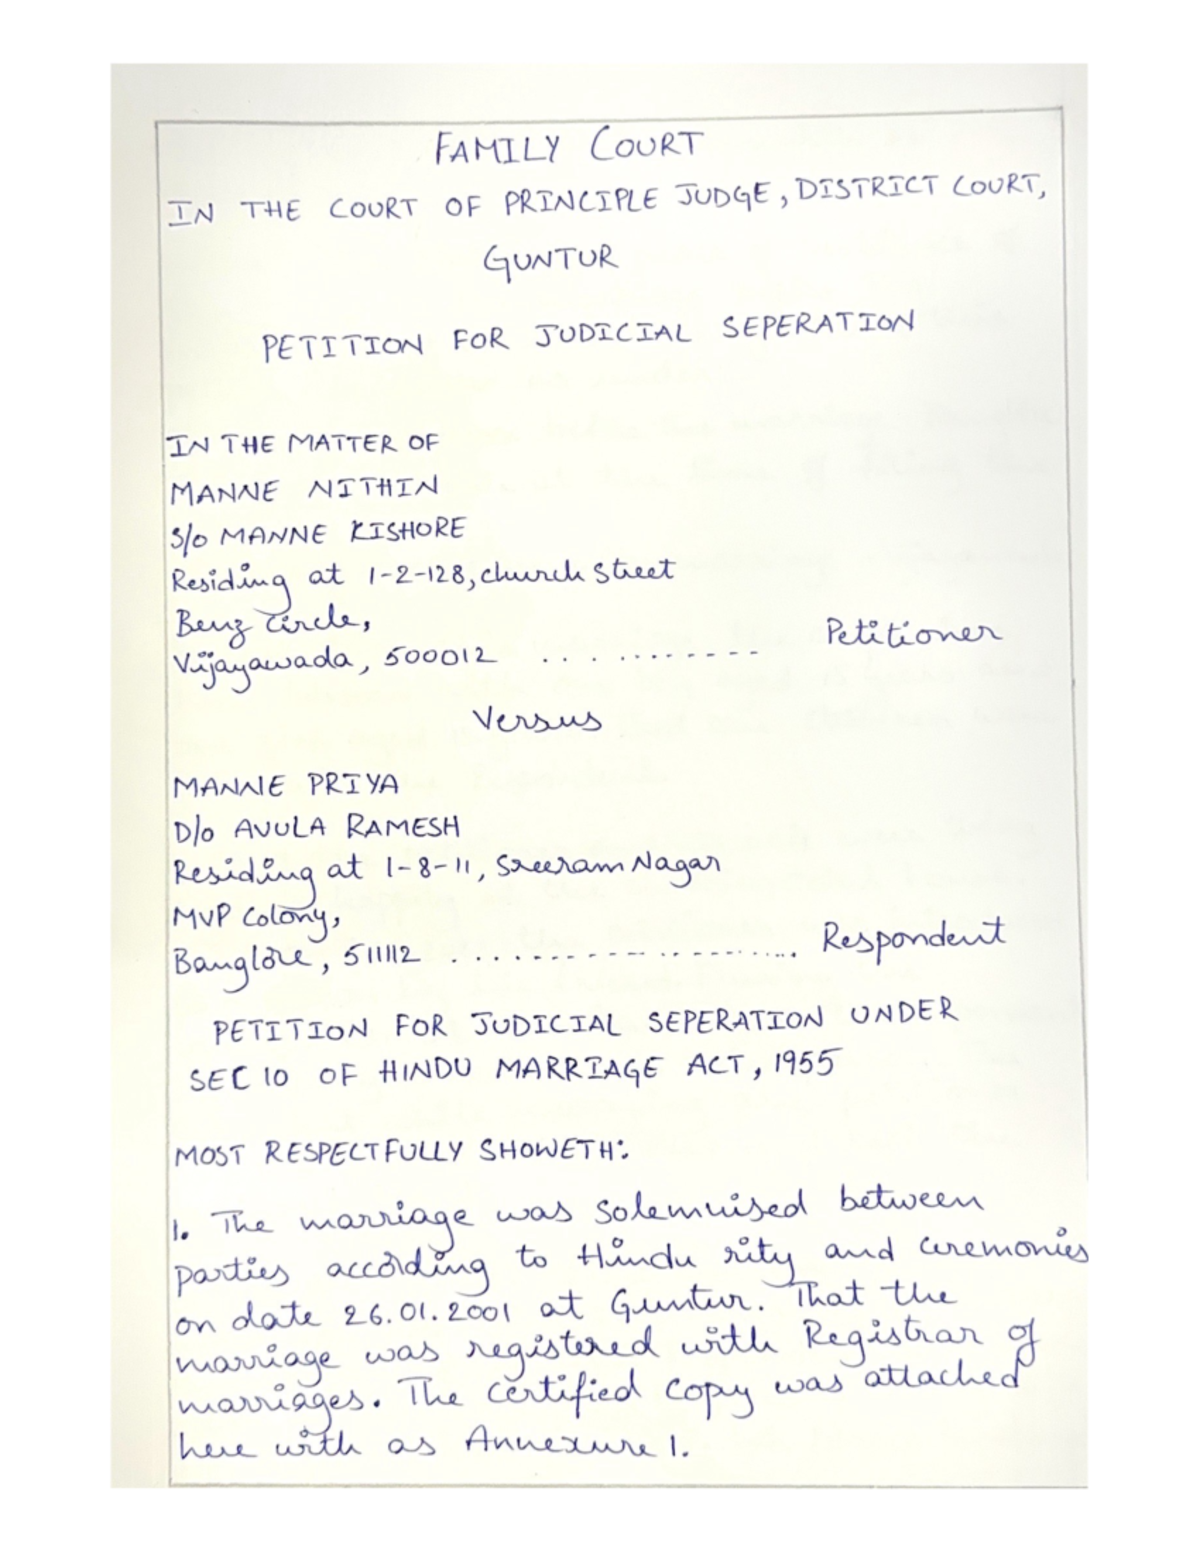 FAMILY COURT
IN THE COURT OF PRINCIPLE JUDGE, DISTRICT COURT,
GUNTUR
PETITION FOR JUDICIAL SEPERATION
IN THE MATTER OF
MANNE NITHIN
S/o MANNE KISHORE
Residing at 1-2-128, church Street
Benz Circle,
Vijayawada, 500012 ........... Petitioner
Versus
MANNE PRIYA
D/o AVULA RAMESH
Residing at 1-8-11, Sreeram Nagar
MVP Colony,
Banglore, 511112 ..................... Respondent
PETITION FOR JUDICIAL SEPERATION UNDER
SEC 10 OF HINDU MARRIAGE ACT, 1955
MOST RESPECTFULLY SHOWETH:
1. The marriage was Solemnised between
parties according to Hindu rity and ceremonies
on date 26.01.2001 at Guntur. That the
marriage was registered with Registrar of
marriages. The certified copy was attached
here with as Annexure 1.